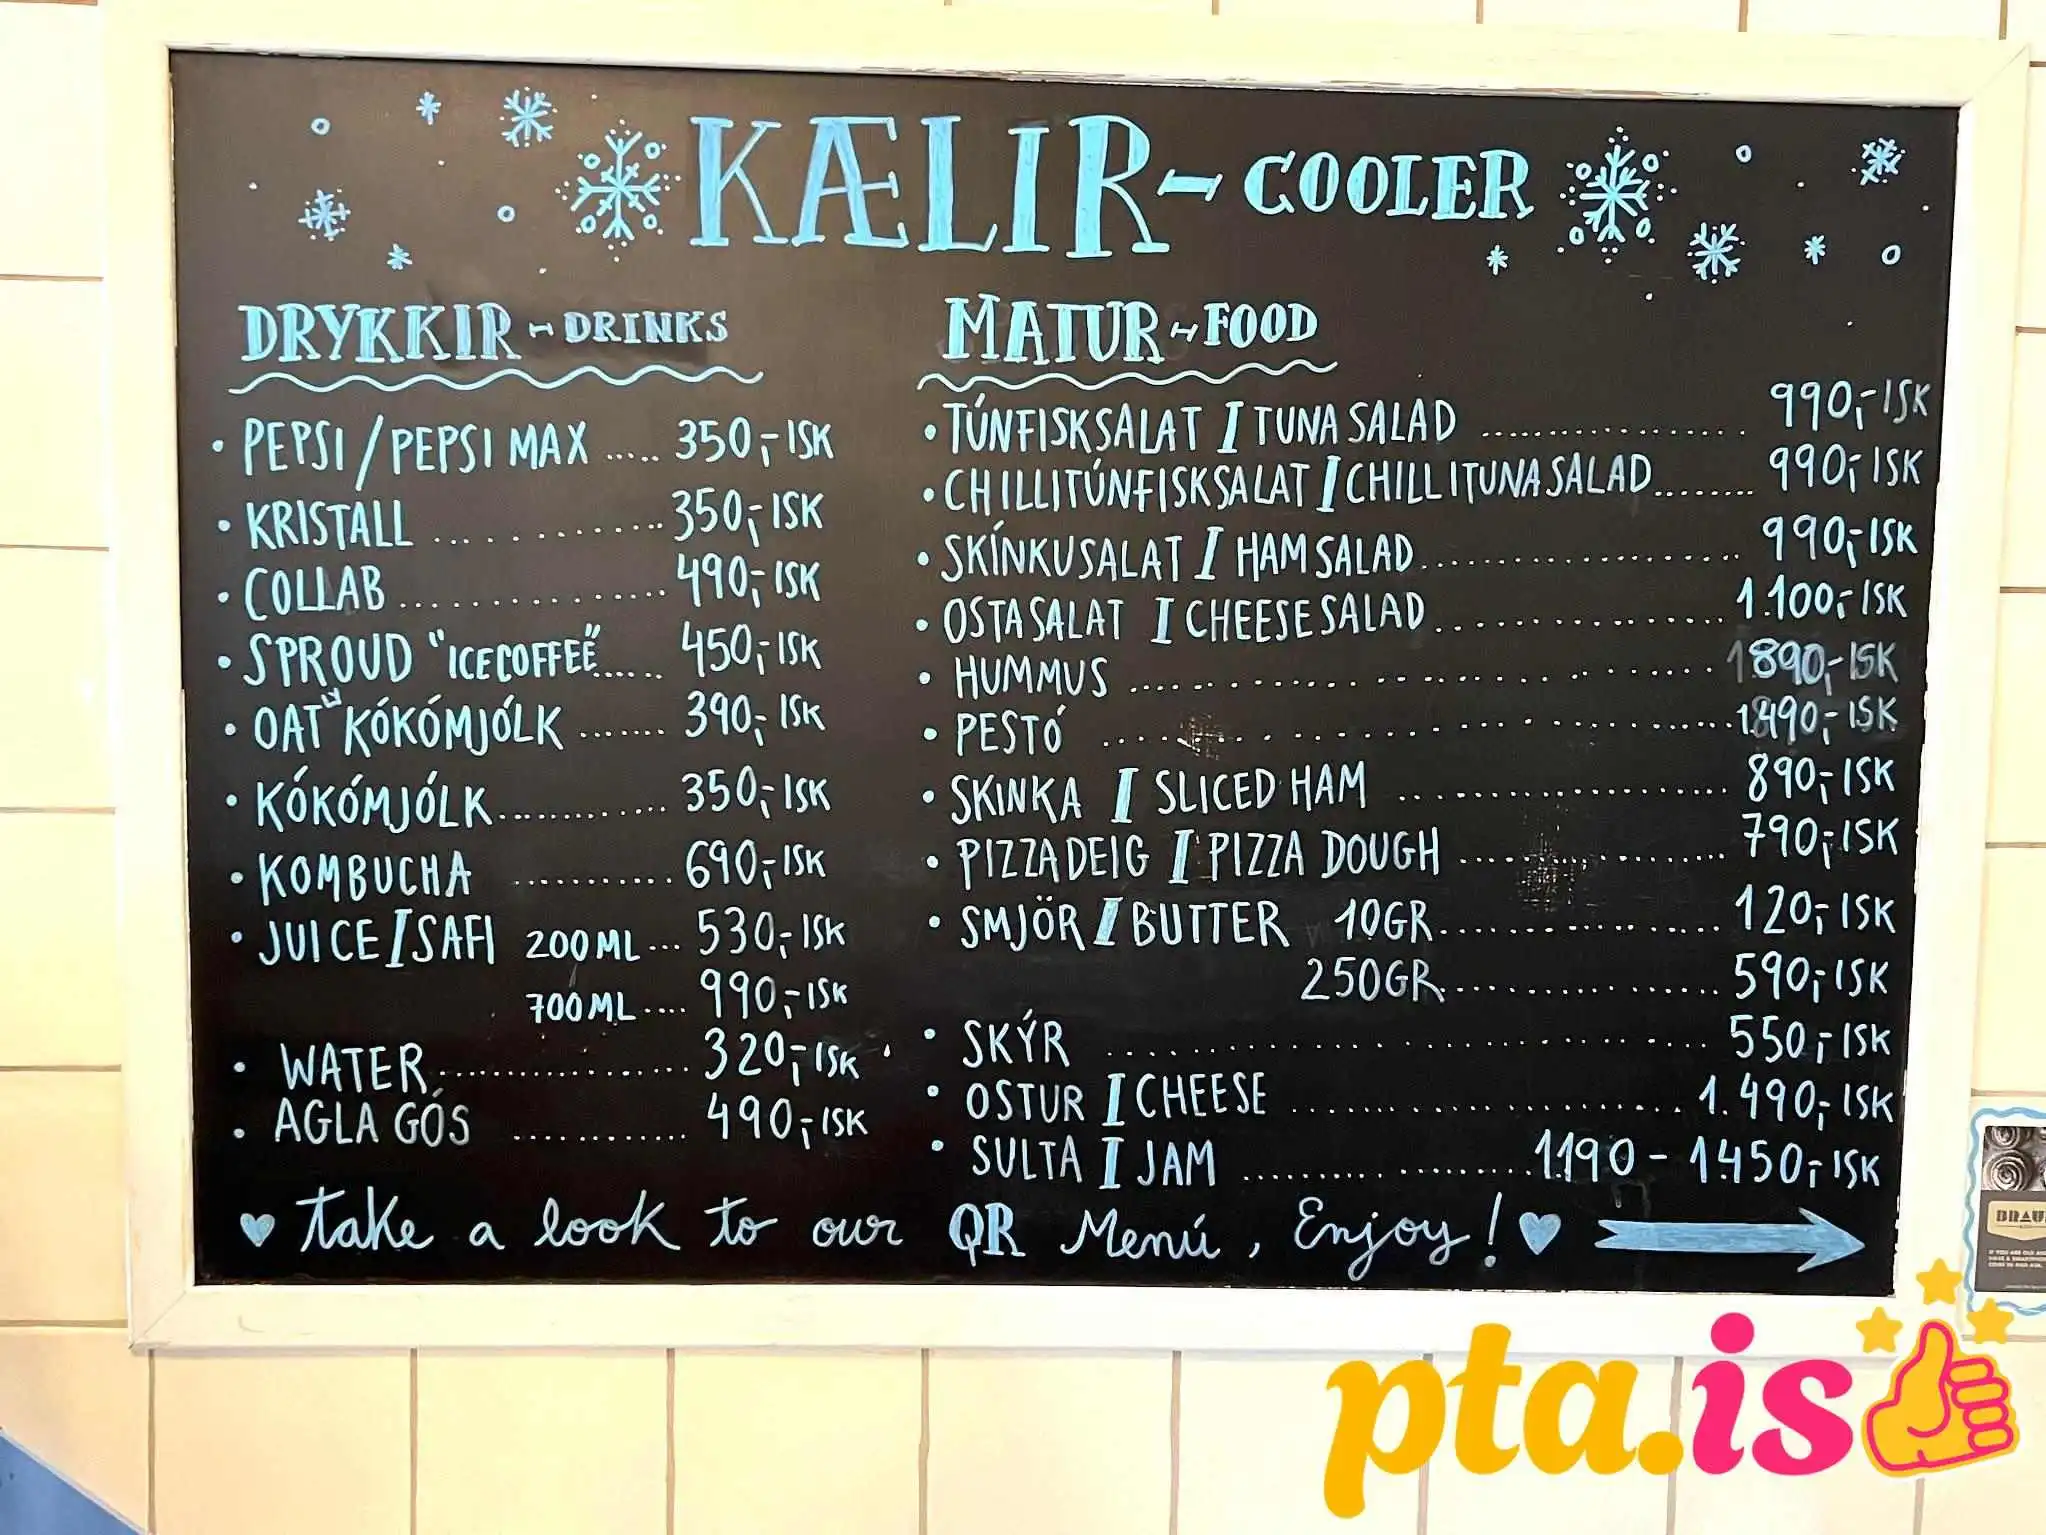 KÆLIR - COOLER
DRYKKIR - DRINKS
• PEPSI / PEPSI MAX ..... 350,- ISK
• KRISTALL ............ 350,- ISK
• COLLAB .............. 490,- ISK
• SPROUD "ICECOFFEE" ...... 450,- ISK
• OAT "KÓKÓMJÓLK ....... 390,- ISK
• KÓKÓMJÓLK ........... 350,- ISK
• KOMBUCHA ........... 690,- ISK
• JUICE I SAFI 200 ML ... 530,- ISK
700 ML .... 990,- ISK
• WATER ................ 320,- ISK
• AGLA GÓS ............ 490,- ISK
MATUR - FOOD
• TÚNFISKSALAT I TUNA SALAD .................. 990,- ISK
• CHILLITÚNFISKSALAT I CHILLITUNASALAD ........ 990,- ISK
• SKÍNKUSALAT I HAM SALAD ...................... 990,- ISK
• OSTASALAT I CHEESE SALAD .................... 1.100,- ISK
• HUMMUS .............................. 890,- ISK
• PESTÓ .............................. 1.490,- ISK
• SKINKA I SLICED HAM ........................ 890,- ISK
• PIZZADEIG I PIZZA DOUGH .................... 790,- ISK
• SMJÖR I BUTTER 10GR .................. 120,- ISK
250GR .................. 590,- ISK
• SKÝR .............................. 550,- ISK
• OSTUR I CHEESE ........................ 1.490,- ISK
• SULTA I JAM .................... 1.190 - 1.450,- ISK
♥ Take a look to our QR Menú, Enjoy! ♥
pta.is